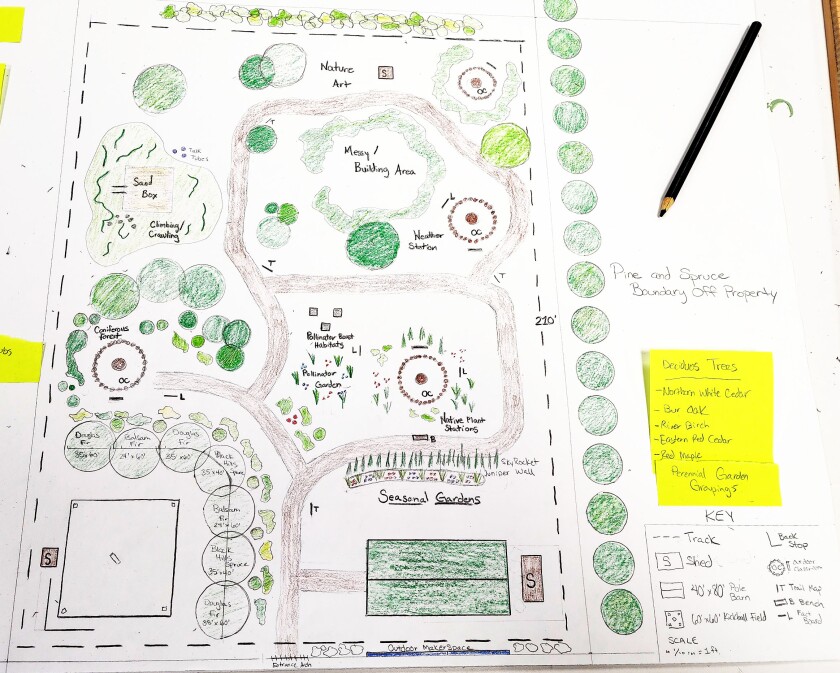 Nature
Art
S
OC
Messy/
Building Area
T
Talk
Tubes
Sand
Box
Climbing/
Crawling
L
OC
Weather
Station
T
T
Pine and Spruce
Boundary Off Property
210'
Coniferous
Forest
OC
L
Pollinator Boost
Habitats
L
Pollinator
Garden
OC
L
Native Plant
Stations
B
Douglas
Fir
35'x60'
Balsam
Fir
24'x60'
Douglas
Fir
35'x60'
Black
Hills
35'x40'
Balsam
Fir
Black
Hills
Spruce
35'x40'
Douglas
Fir
35'x60'
SkyRocket
Juniper Wall
Seasonal Gardens
T
S
S
Outdoor MakerSpace
Entrance Arch
ubs
Decidues Trees
-Northern White Cedar
-Bur Oak
-River Birch
-Eastern Red Cedar
-Red Maple
Perennial Garden
Groupings
KEY
Track
S Shed
40'x80' Pole
Barn
60'x60' Kickball Field
SCALE
= 1ft.
Back
Stop
OC
T Trail Map
B Bench
L